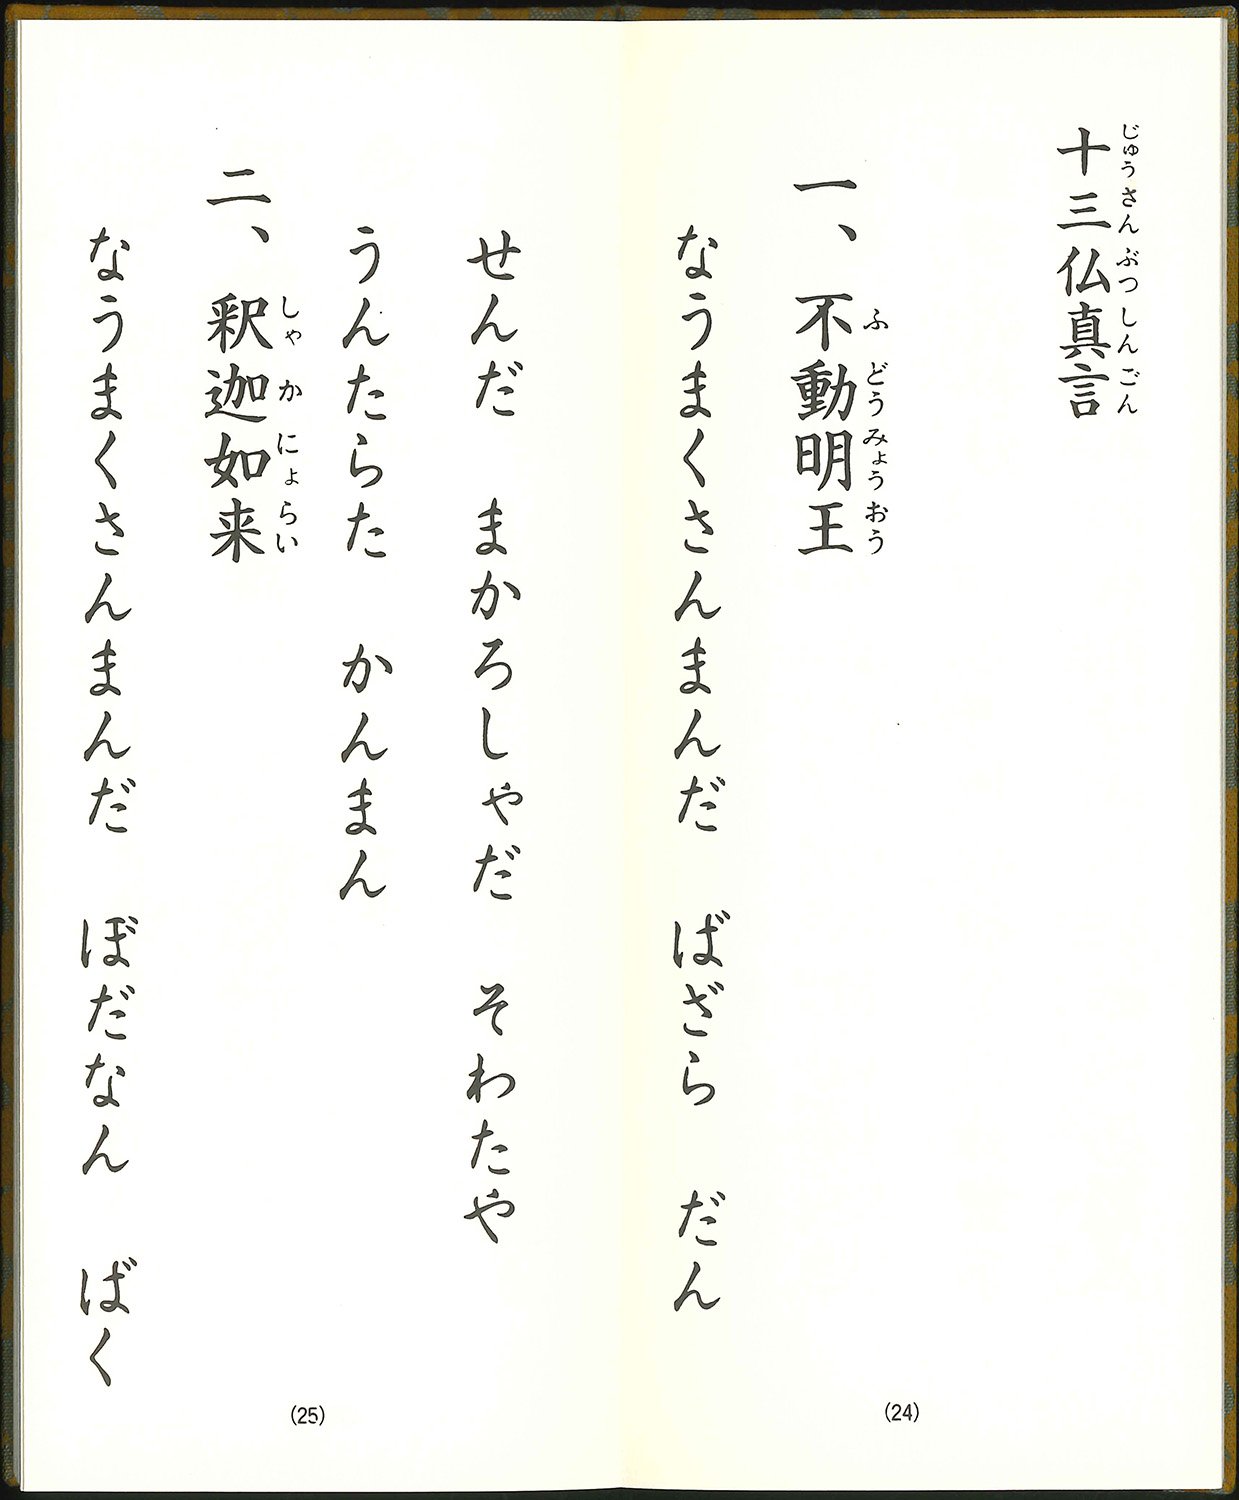 十三仏真言
じゅうさんぶつしんごん
一、不動明王
ふどうみょうおう
なうまくさんまんだ　ばざら　だん
(24)
せんだ　まかろしゃだ　そわたや
うんたらた　かんまん
二、釈迦如来
しゃかにょらい
なうまくさんまんだ　ぼだなん　ばく
(25)